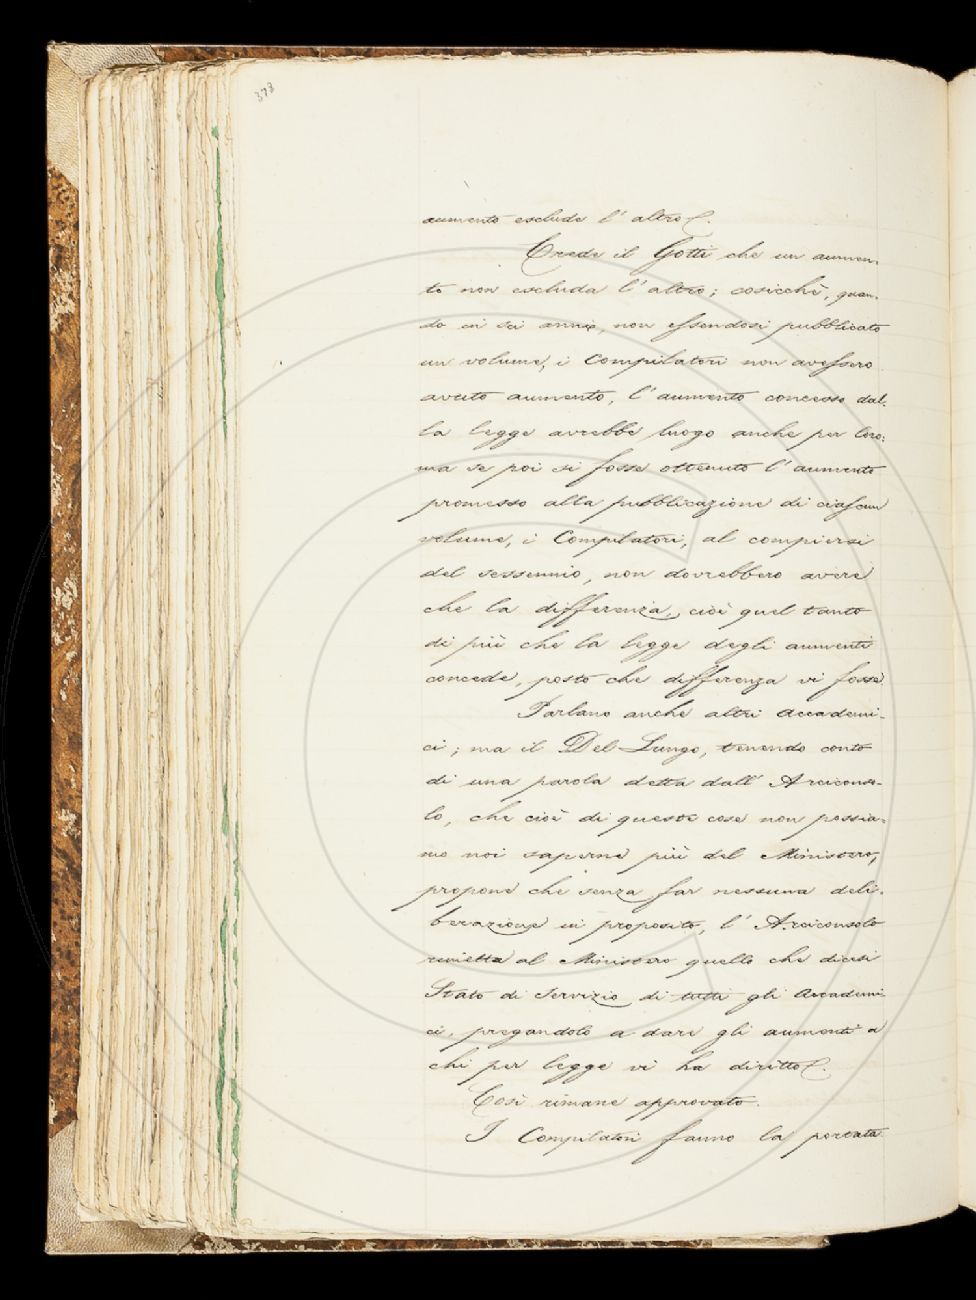 378
aumento esclude l' altro.
Crede il Gotti che un aumen-
to non escluda l' altro; cosicchè, quan-
do in sei anni, non essendosi pubblicato
un volume, i Compilatori non avessero
avuto aumento, l' aumento concesso dal-
la legge avrebbe luogo anche per loro:
ma se poi si fosse ottenuto l' aumento
promesso alla pubblicazione di ciascun
volume, i Compilatori, al compiersi
del sessennio, non dovrebbero avere
che la differenza, cioè quel tanto
di più che la legge degli aumenti
concede, posto che differenza vi fosse.
Parlano anche altri Accademi-
ci; ma il Del Lungo, tenendo conto
di una parola detta dall' Arciconso-
lo, che cioè di queste cose non possia-
mo noi saperne più del Ministero,
propone che senza far nessuna deli-
berazione in proposito, l' Arciconsolo
rimetta al Ministero quello che dicesi
Stato di Servizio di tutti gli Accademi-
ci, pregandolo a dare gli aumenti a
chi per legge vi ha diritto.
Così rimane approvato.
I Compilatori fanno la portata